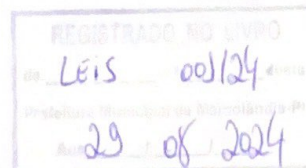 REGISTRADO NO LIVRO
de LEIS 001/24
Prefeitura Municipal de Marcolândia-PI
29 08 2024